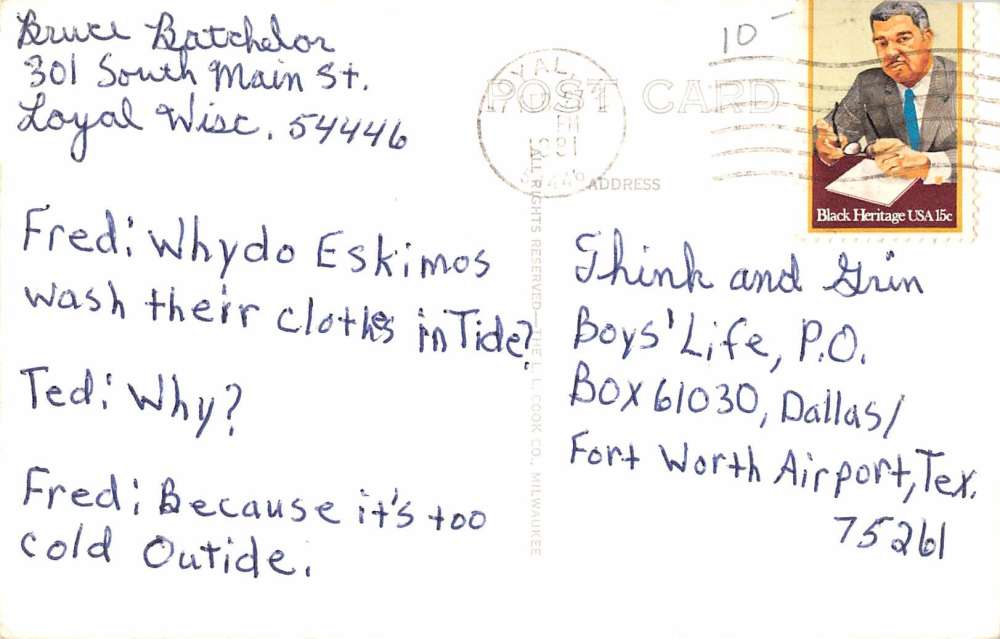 Bruce Batchelor
301 South Main St.
Loyal Wisc. 54446
Fred: Why do Eskimos
wash their clothes in Tide?
Ted: Why?
Fred: Because it's too
cold Outide.
10
POST CARD
ADDRESS
ALL RIGHTS RESERVED—THE L. L. COOK CO., MILWAUKEE
Black Heritage USA 15c
Think and Grin
Boys' Life, P.O.
BOX 61030, Dallas/
Fort Worth Airport, Tex.
75261